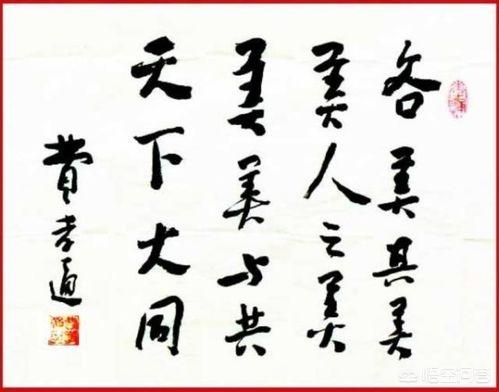 各美其美
美人之美
美美与共
天下大同
费孝通
悟空问答